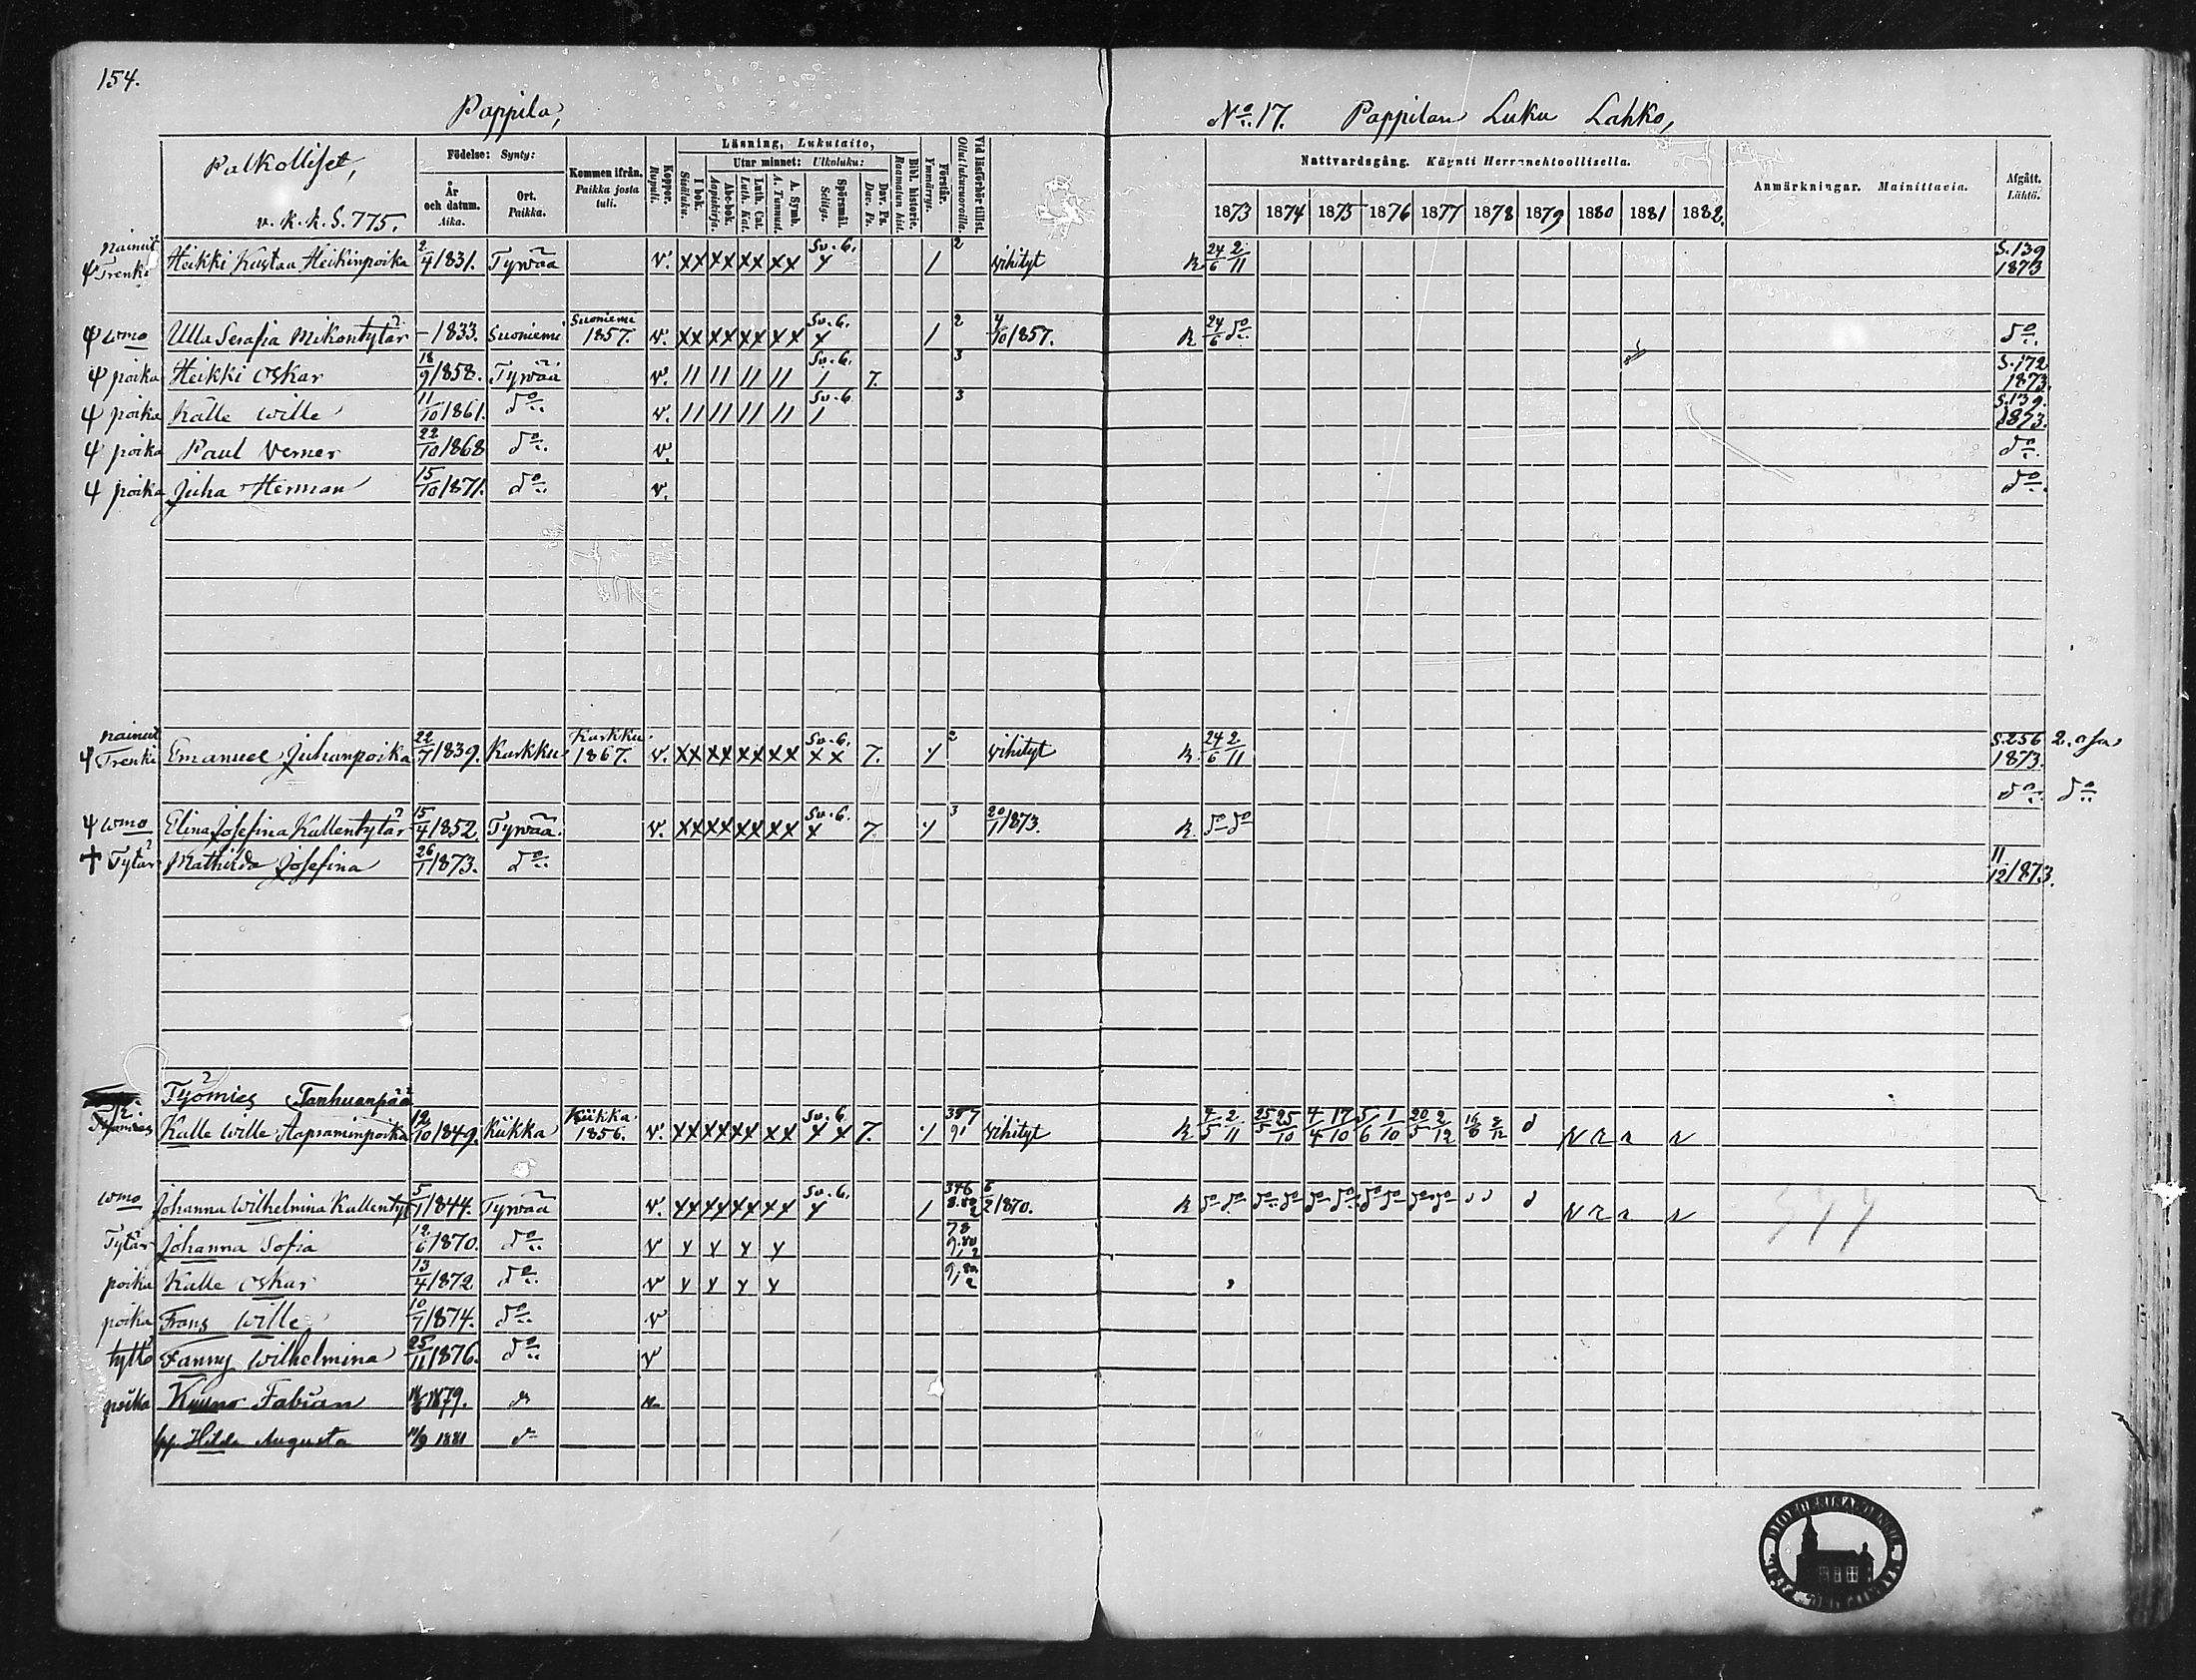 154.
Pappila,
No. 17. Pappilan Luku Lahko,
Palkolliset,
v. k. k. S. 775.
Födelse: Synty:
År och datum. Aika.
Ort. Paikka.
Kommen ifrån. Paikka josta tuli.
Koppor. Rupuli.
Läsning, Lukutaito,
I bok. Sisäluku.
Utur minnet: Ulkoluku:
Abc-bok. Aapiskirja.
Luth. Cat. Luth. Kat.
A. Symb. A. Tunnust.
Spörsmål. Selitys.
Dav. Ps. Dav. Ps.
Bibl. historie. Raamatun hist.
Förstår. Ymmärrys.
Vid läsförhör tillst. Ollut lukuvuoroilla.
Nattvardsgång. Käynti Herranehtoollisella.
1873 1874 1875 1876 1877 1878 1879 1880 1881 1882.
Anmärkningar. Mainittavia.
Afgått. Lähtö.
nainut Trenki Heikki Kustaa Heikinpoika 2/4 1831. Tyrvää v. XX XX XX XX Sv. 6. X / 2 vihityt R 24/6 2/11 S. 139 1873
wmo Ulla Serafia Mikontytär – 1833. Suoniemi Suoniemi 1857. v. XX XX XX XX Sv. 6. X / 2 4/10 1857. R 24/6 do do
poika Heikki Oskar 18/9 1858. Tyrvää v. // // // // Sv. 6. / 7. 3 S. 172 1873.
poika Kalle Wille 11/10 1861. do v. // // // // Sv. 6 / 3 S. 139. 1873.
poika Paul Verner 22/10 1868 do v. do
poika Juha Herman 15/10 1871. do v. do
nainut Trenki Emanuel Juhanpoika 22/7 1839. Karkku Karkku 1867. v. XX XX XX XX Sv. 6. X X 7. 2 vihityt R. 24/6 2/11 S. 256 2. osa 1873.
do do
wmo Elina Josefina Kallentytär 15/4 1852. Tyrvää. v. XX XX XX XX Sv. 6. X 7. 3 20/1 1873. R. do do
Tytär Mathilda Josefina 26/1 1873. do 11/12 1873.
Työmies Tanhuanpää
Kalle Wille Aapraminpoika 12/10 1849. Kiikka Kiikka 1856. v. XX XX XX XX Sv. 6 X X 7. vihityt R 4/5 2/11 25/5 25/10 4/4 17/10 5/6 1/10 20/5 2/12
wmo Johanna Wilhelmina Kallentyt 5/1 1844. Tyrvää v. XX XX XX XX Sv. 6. X / 346 6/2 1870. R do do do do do do do do do do
Tytär Johanna Sofia 12/6 1870. do v
poika Kalle Oskar 13/4 1872 do v
poika Frans Wille 10/1 1874. do v
tyttö Fanny Wilhelmina 25/11 1876. do v
poika Kuuno Fabian 1879. do
Hilda Augusta 11/9 1881 do